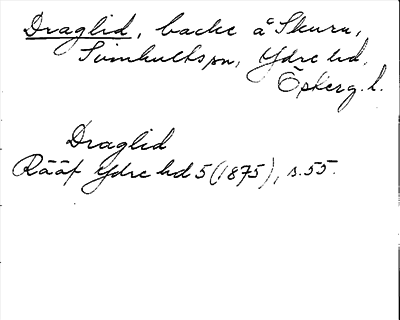 Draglid, backe å Skuru,
Svinhults sn, Ydre hd,
Östergl.
Draglid
Rääf Ydre hd 5 (1875), s. 55.